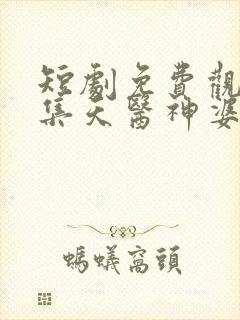 短劇免費觀
集天醫神婆
螞蟻窩頭